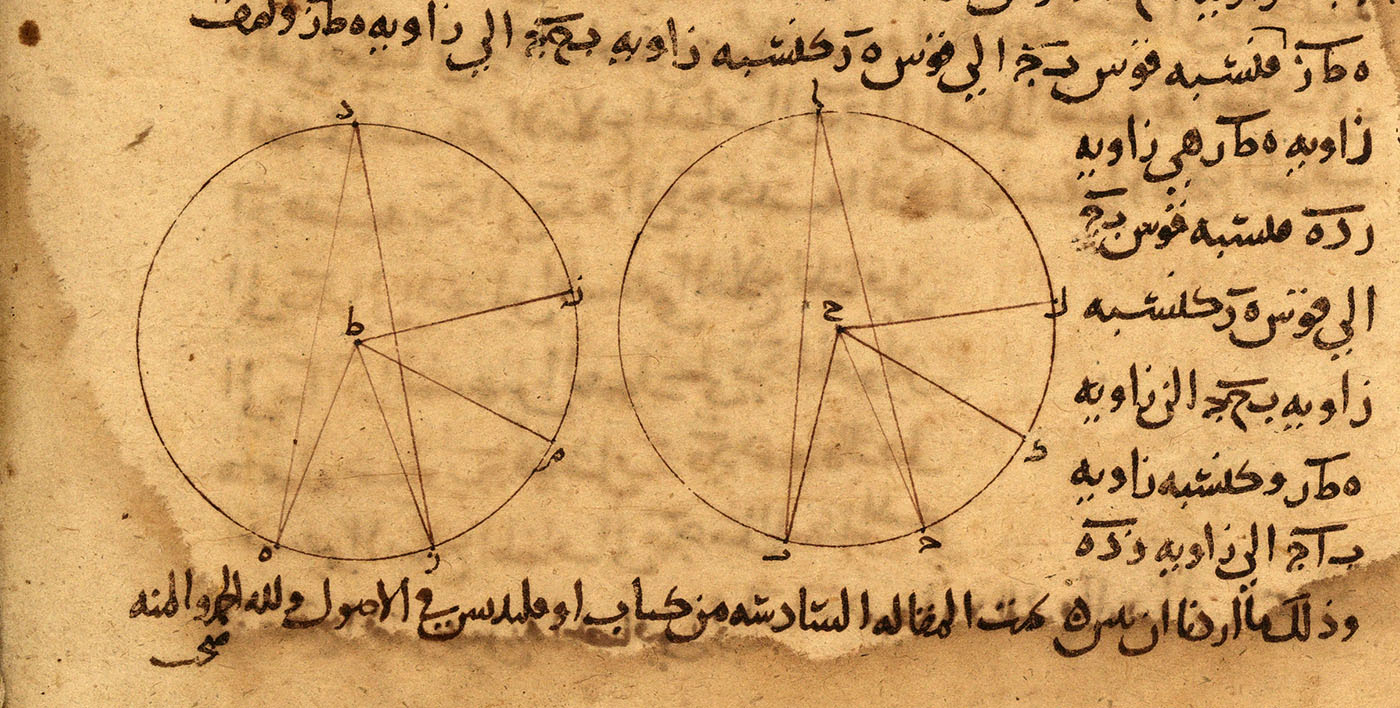 ه ط ز فنسبه قوس ب ج الي قوس ه ز كنسبه زاويه ب ح ج الي زاويه ه ط ز ونصف
زاويه ه ط ز هي زاويه
ز د ه فنسبه قوس ب ج
الي قوس ه ز كنسبه
زاويه ب ح ج الي زاويه
ه ط ز وكنسبه زاويه
ب ا ج الي زاويه ز د ه
وذلك ما اردنا ان نبين ه تمت المقاله السادسه من كتاب اوقليدس في الاصول ولله الحمد والمنه
د
ن
ط
م
ه
ز
ا
ل
ح
ك
ب
ج